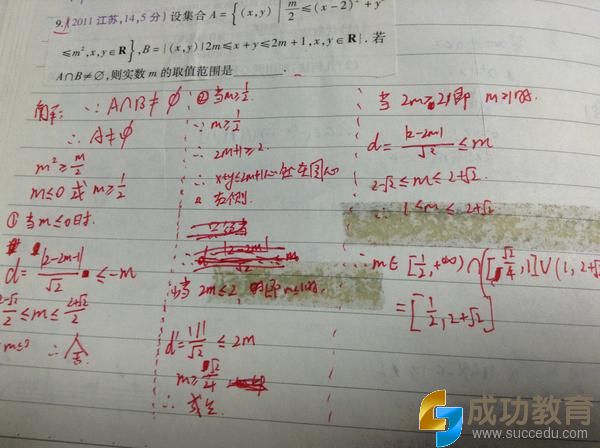 9.(2011 江苏,14,5分)设集合A={(x,y)|m/2≤(x-2)²+y²
≤m²,x,y∈R},B={(x,y)|2m≤x+y≤2m+1,x,y∈R}.若
A∩B≠∅,则实数m的取值范围是
解: ∵ A∩B≠∅
∴ A≠∅
m²≥m/2
m≤0 或 m≥1/2
① 当m≤0时.
d=|2-2m-1|/√2 ≤-m
2-√2/2≤m≤2+√2/2
m≤0 ∴
② 当m≥1/2.
∵ m≥1/2
∴ 2m+1≥2.
∴ x+y≤2m+1 在圆心
右侧.
当 2m≤2 即m≤1时.
d=|1|/√2≤2m
m≥√2/4
∴ 成立.
当 2m≥2 即 m≥1时.
d=|2-2m|/√2≤m
2-√2≤m≤2+√2
∴ 1≤m≤2+√2
∴ m∈[1/2,+∞)∩([√2/4,1]∪(1,2+√2
=[1/2,2+√2]
成功教育
www.succedu.com